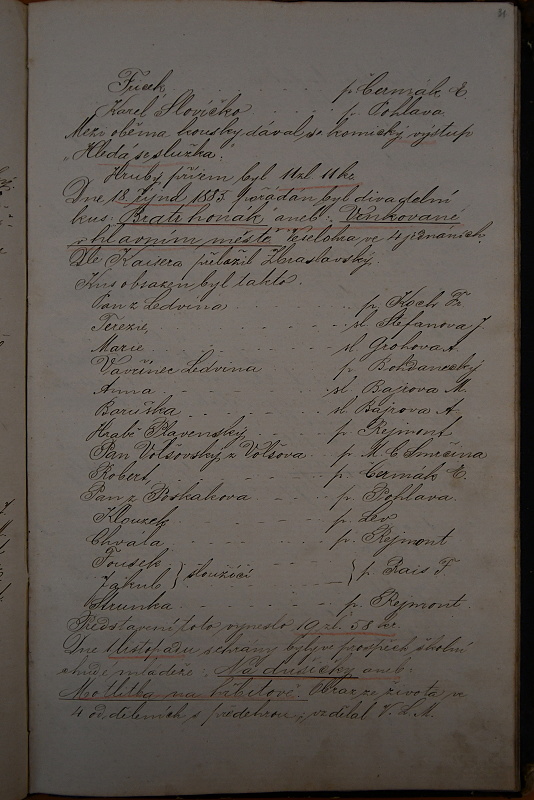 31
Fricek . . . . p. Čermák E.
Karel Slovíčko . . . . p. Pohlava.
Mezi oběma kousky dával se komický výstup
„Hledá se služka."
Hrubý příjem byl 11 zl. 11 kr.
Dne 18. října 1883. pořádán byl divadelní
kus: Bratr honák aneb: Venkované
v hlavním městě. Veselohra ve 4 jednáních.
Dle Kaisera přeložil Zbraslavský.
Kus obsazen byl takto:
Pan z Ledvina . . . . p. Koch Fr.
Terezie, . . . . sl. Štefanova J.
Marie . . . . sl. Grohova A.
Vavřinec Ledvina p. Bohdanecký
Anna . . . . sl. Bajrova M.
Baruška . . . . sl. Bajrova A.
Hrabě Plavenský, . . . p. Rejmont
Pan Volšovský z Volšova . . p. M. C. Smrčina
Robert, . . . . p. Čermák E.
Pan z . . . p. Pohlava.
Klouzek . . . . p. Lev
Chvála . . . . p. Rejmont
Fousek
Jakub } sloužící } p. Rais F.
Strunka . . . . p. Rejmont.
Představení toto vyneslo 19 zl. 58 kr.
Dne 1 listopadu sehrány byly ve prospěch školní
chudé mládeže: „Na dušičky aneb:
Motlitba na hřbitově." Obraz ze života ve
4 odděleních s předehrou, vzdělal V. L. M.